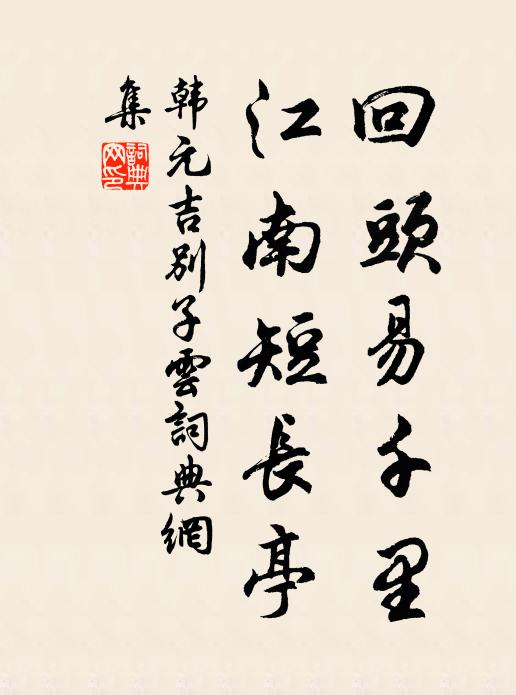 回頭易千里
江南短長亭
韩元吉別子雲詞典網
集
詞典
网印